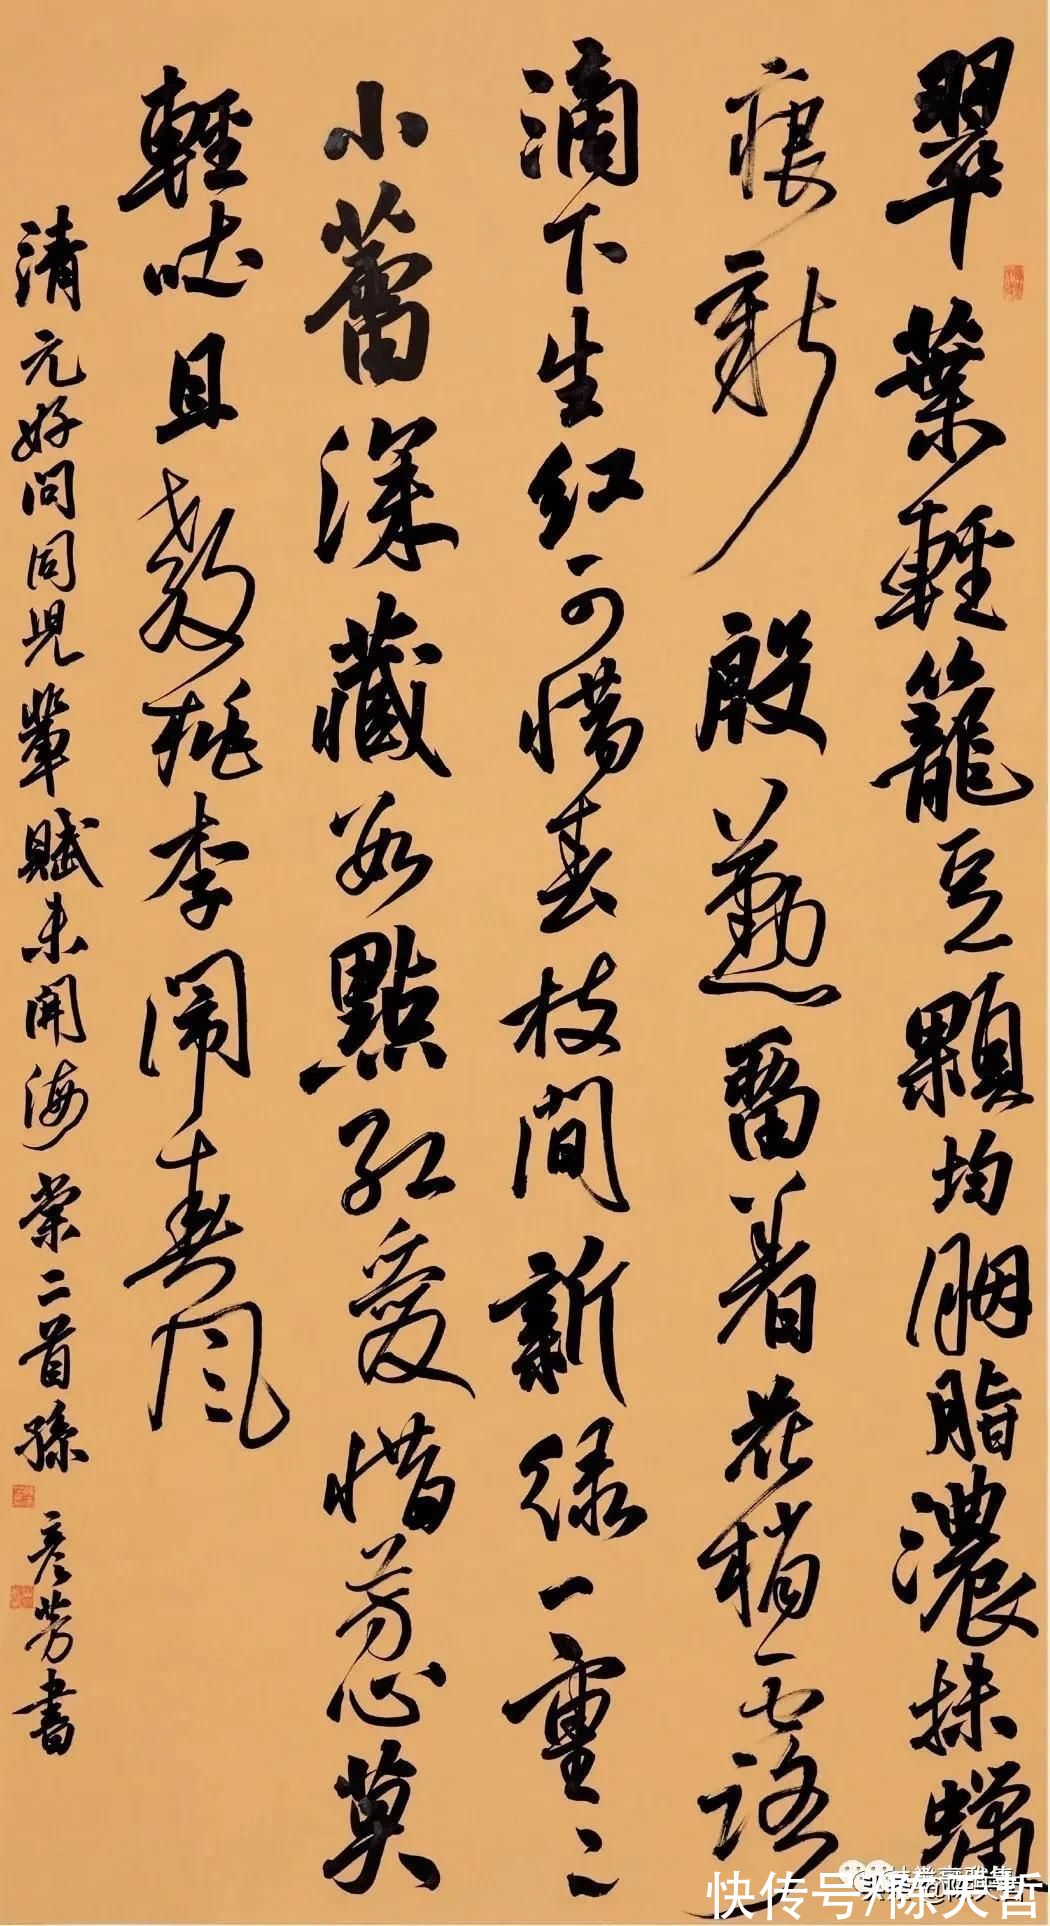 翠葉輕籠豆顆均胭脂濃抹蠟
痕新殷懃留着花梢露
滴下生红可惜春枝間新绿一重〻
小蕾深藏数點红愛惜芳心莫
輕吐且教桃李闹春风
清元好问同児輩賦未開海棠二首孫彦芳書
快传号/陈天哲